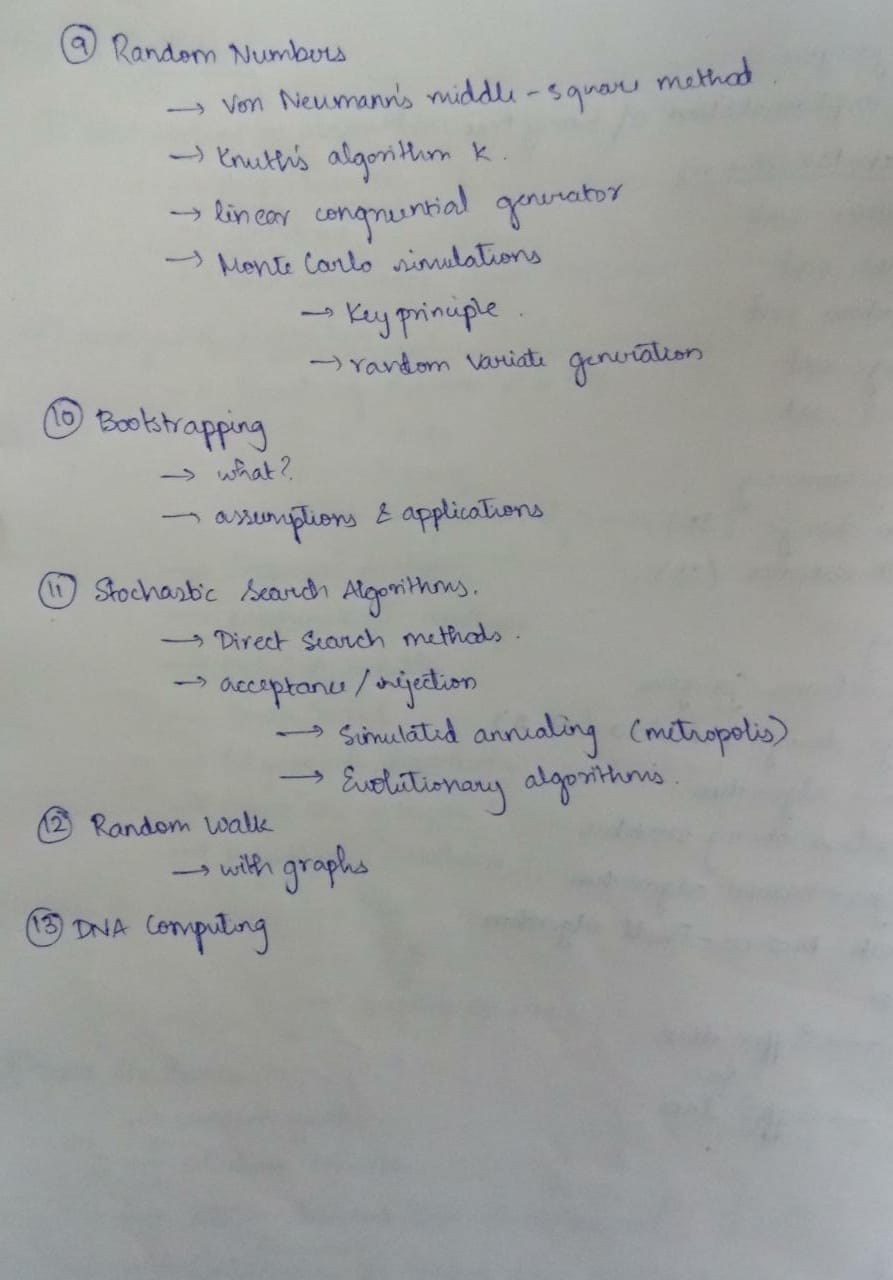 ⑨ Random Numbers
→ Von Neumann's middle-square method.
→ Knuth's algorithm K.
→ linear congruential generator
→ Monte Carlo simulations
→ Key principle.
→ random variate generation
⑩ Bootstrapping
→ what?
→ assumptions & applications
⑪ Stochastic Search Algorithms.
→ Direct Search methods.
→ acceptance/rejection
→ Simulated annealing (metropolis)
→ Evolutionary algorithms.
⑫ Random Walk
→ with graphs
⑬ DNA Computing